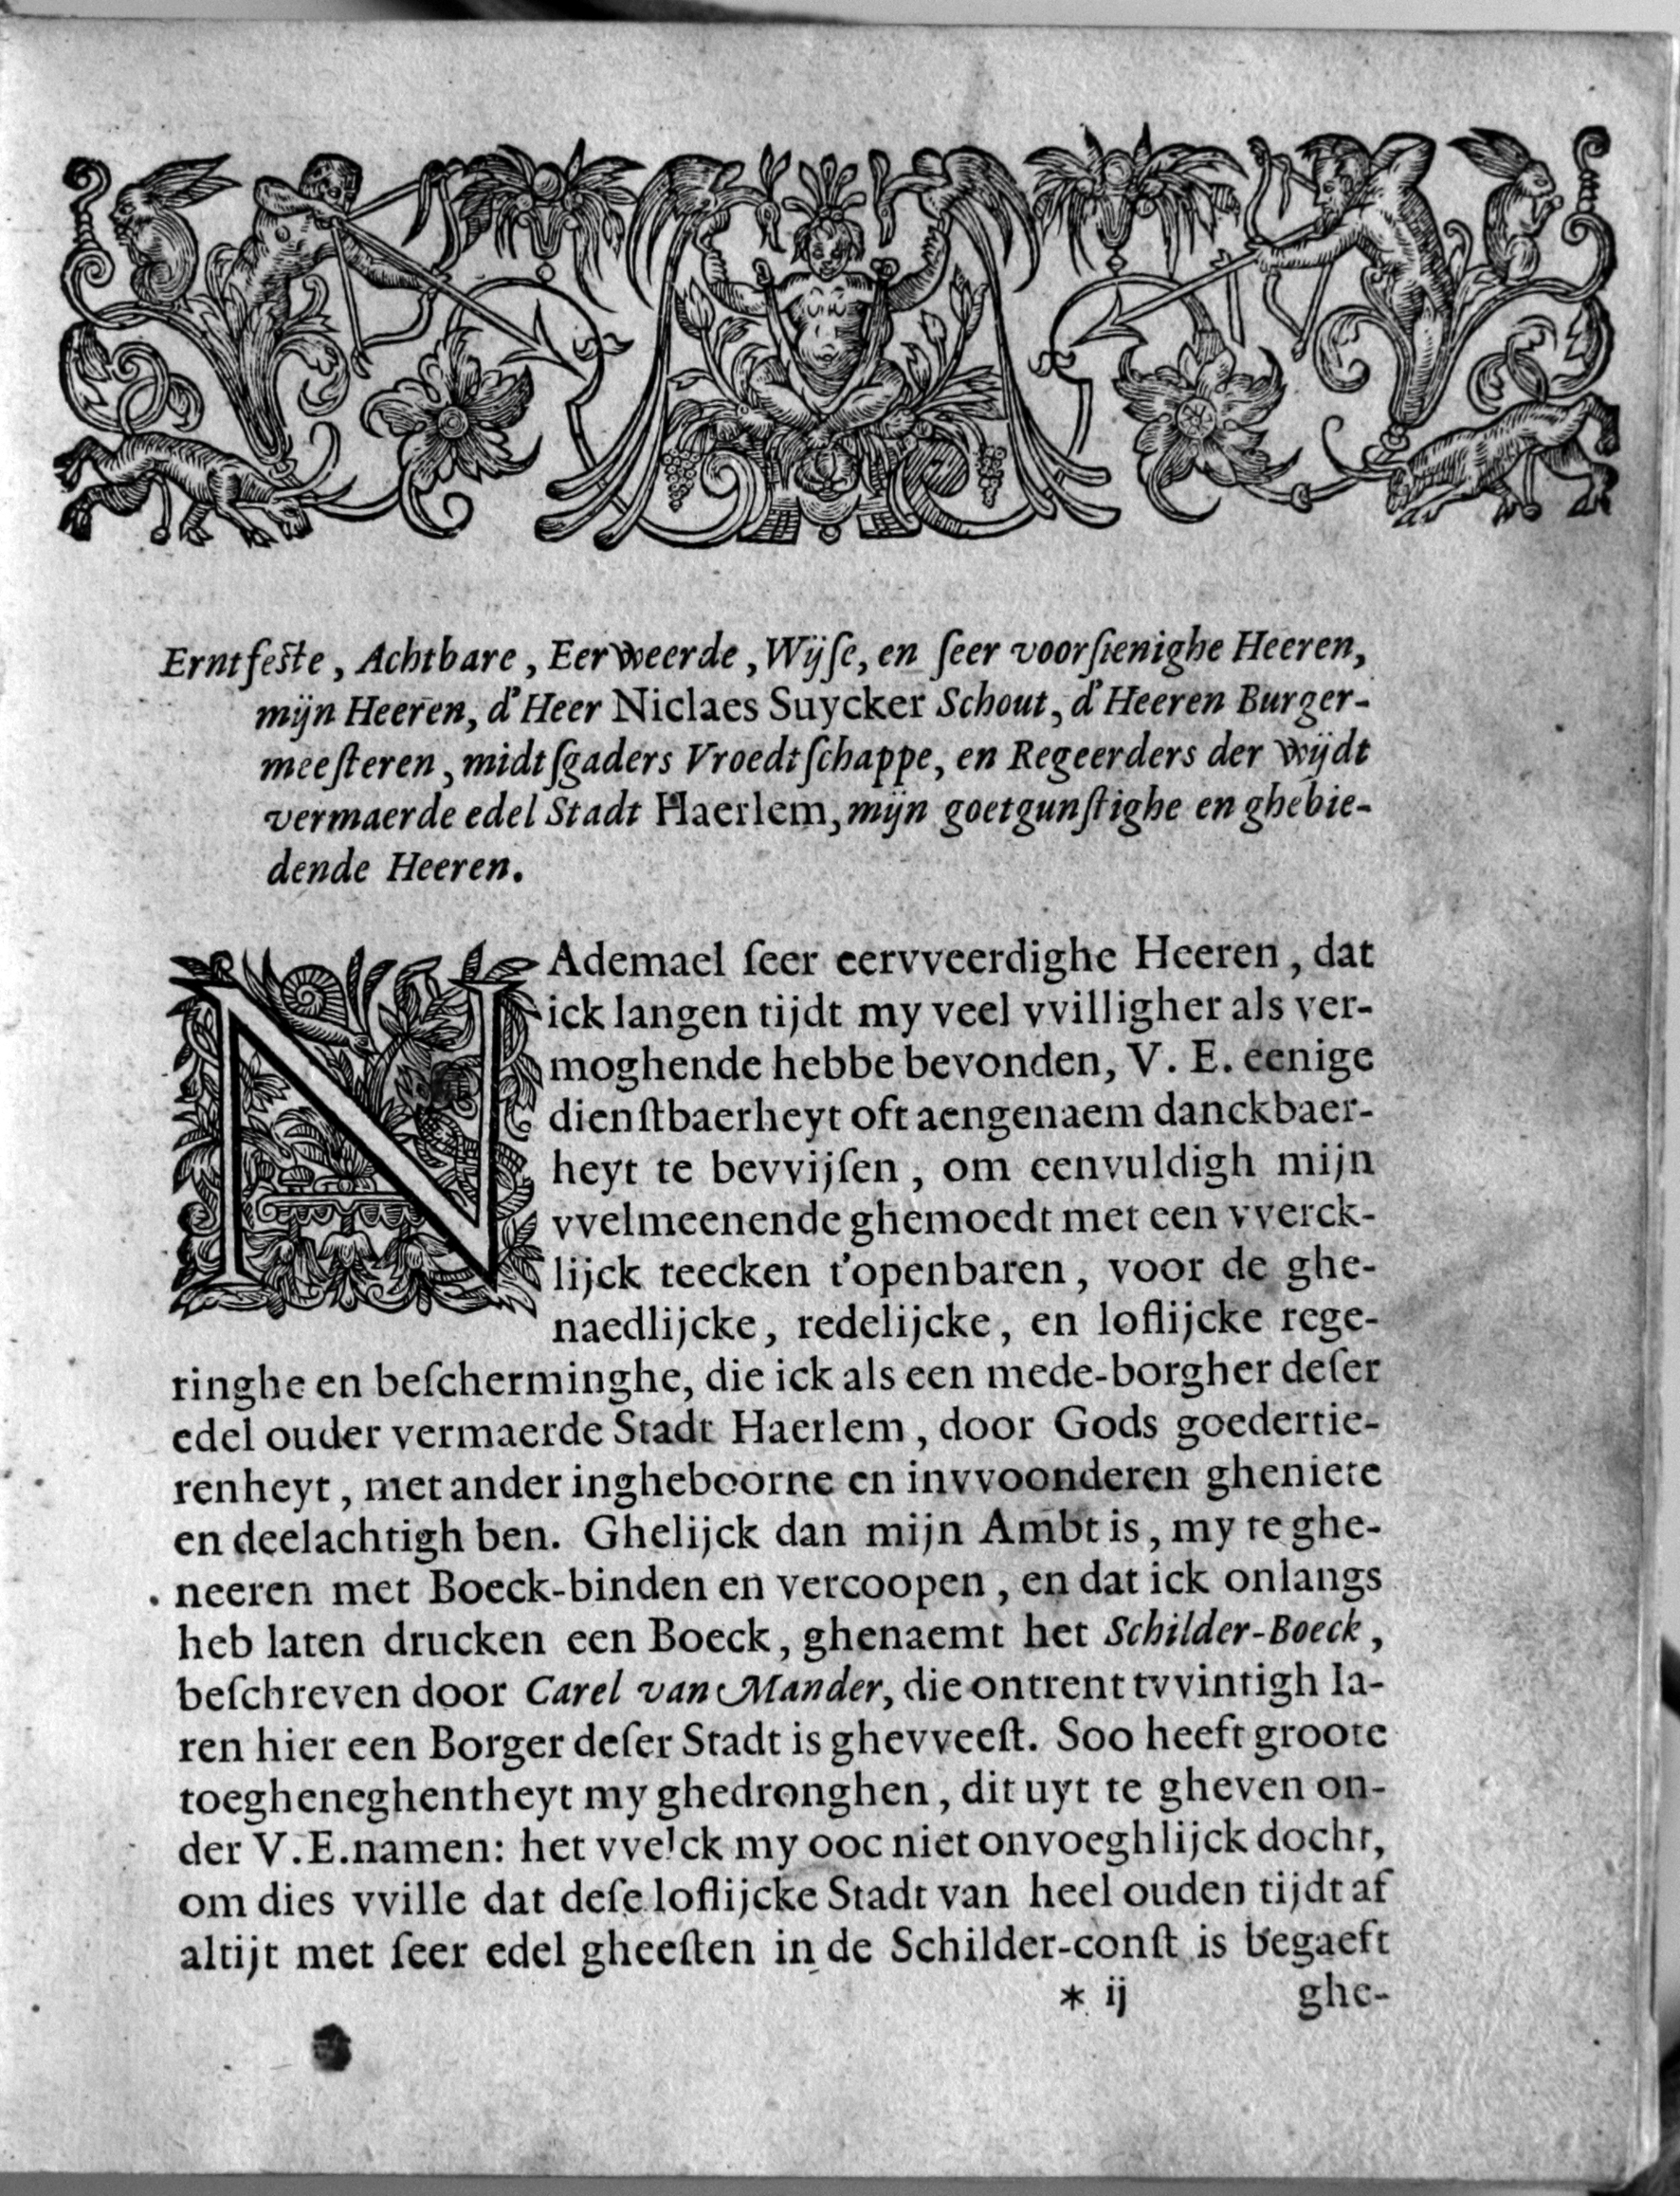 Erntfeſte, Achtbare, Eerweerde, Wijſe, en ſeer voorſienighe Heeren,
mijn Heeren, d'Heer Niclaes Suycker Schout, d'Heeren Burger-
meeſteren, midtſgaders Vroedtſchappe, en Regeerders der wijdt
vermaerde edel Stadt Haerlem, mijn goetgunſtighe en ghebie-
dende Heeren.
NAdemael ſeer eervveerdighe Heeren, dat
ick langen tijdt my veel vvilligher als ver-
moghende hebbe bevonden, V. E. eenige
dienſtbaerheyt oft aengenaem danckbaer-
heyt te bevvijſen, om eenvuldigh mijn
vvelmeenende ghemoedt met een vverck-
lijck teecken t'openbaren, voor de ghe-
naedlijcke, redelijcke, en loflijcke rege-
ringhe en beſcherminghe, die ick als een mede-borgher deſer
edel ouder vermaerde Stadt Haerlem, door Gods goedertie-
renheyt, met ander ingheboorne en invvoonderen gheniete
en deelachtigh ben. Ghelijck dan mijn Ambt is, my te ghe-
neeren met Boeck-binden en vercoopen, en dat ick onlangs
heb laten drucken een Boeck, ghenaemt het Schilder-Boeck,
beſchreven door Carel van Mander, die ontrent tvvintigh Ia-
ren hier een Borger deſer Stadt is ghevveeſt. Soo heeft groote
toegheneghentheyt my ghedronghen, dit uyt te gheven on-
der V.E. namen: het vvelck my ooc niet onvoeghlijck docht,
om dies vville dat deſe loflijcke Stadt van heel ouden tijdt af
altijt met ſeer edel gheeſten in de Schilder-conſt is begaeft
* ij ghe-